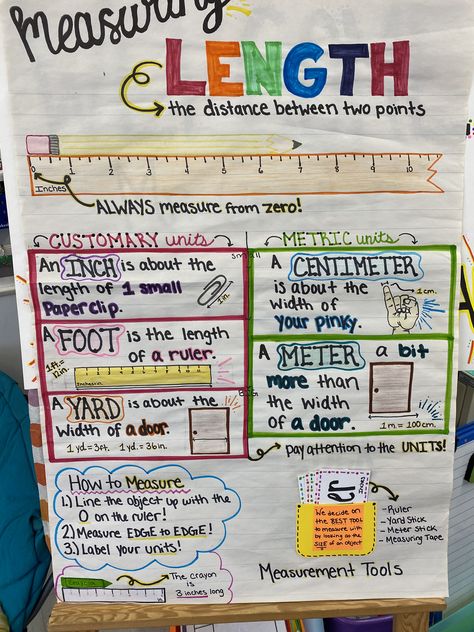 Measuring
LENGTH
the distance between two points
0 1 2 3 4 5 6 7 8 9 10
Inches
ALWAYS measure from zero!
CUSTOMARY units
METRIC units
small
An INCH is about the
length of 1 small
Paperclip.
1 in.
A CENTIMETER
is about the
width of
your pinky.
1 cm.
A FOOT is the length
of a ruler.
1 ft. =
12 in.
A METER a bit
more than
the width
of a door.
1 m = 100cm.
BIG
A YARD is about the
width of a door.
1 yd. = 3ft. 1 yd. = 36in.
pay attention to the UNITS!
How to Measure
1.) Line the object up with the
0 on the ruler!
2.) Measure EDGE to EDGE!
3.) Label your units!
The crayon
is
3 inches long
er
We decide on
the BEST TOOL
to measure with
by looking at the
SIZE of an object
- Ruler
- Yard Stick
- Meter Stick
- Measuring Tape
Measurement Tools